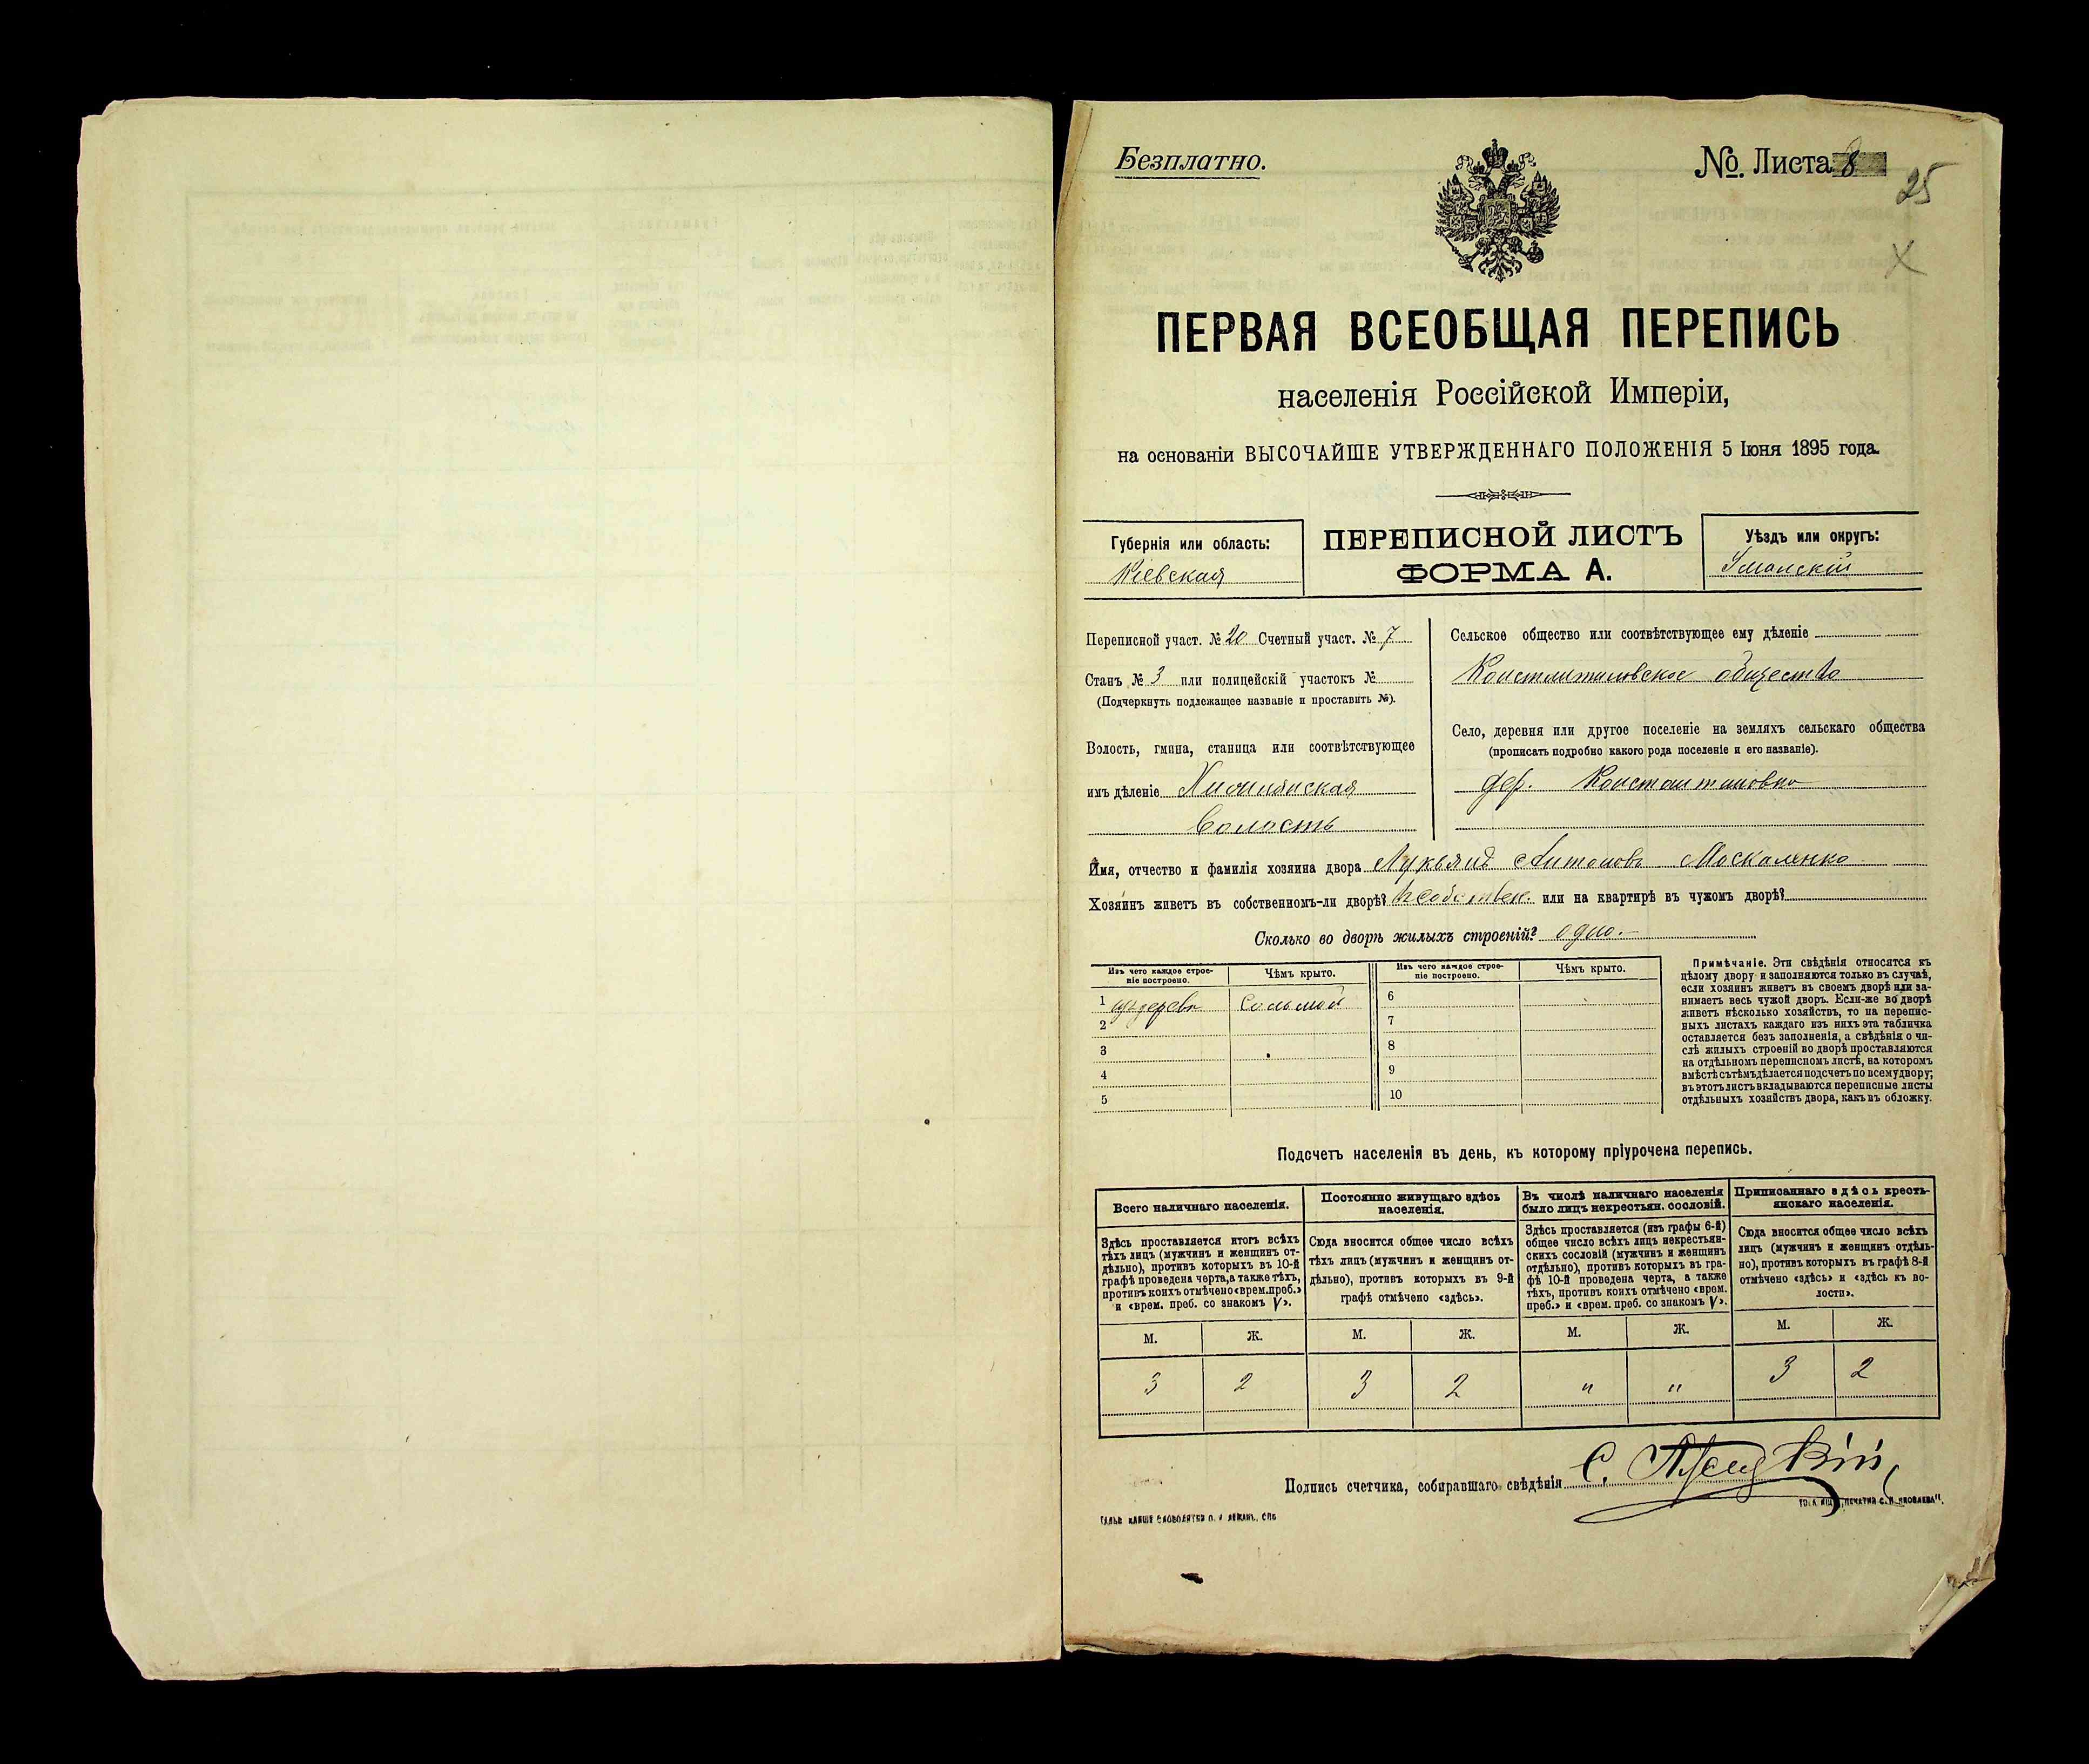 Безплатно.
№. Листа 8
25
X
ПЕРВАЯ ВСЕОБЩАЯ ПЕРЕПИСЬ
населенія Россійской Имперіи,
на основаніи ВЫСОЧАЙШЕ УТВЕРЖДЕННАГО ПОЛОЖЕНІЯ 5 Іюня 1895 года.
Губернія или область:
Кіевская
ПЕРЕПИСНОЙ ЛИСТЪ
ФОРМА А.
Уѣздъ или округъ:
Уманскій
Переписной участ. № 20 Счетный участ. № 7
Станъ № 3 или полицейскій участокъ №
(Подчеркнуть подлежащее названіе и проставить №).
Волость, гмина, станица или соотвѣтствующее
имъ дѣленіе
Волость
Сельское общество или соотвѣтствующее ему дѣленіе
Константиновское общество
Село, деревня или другое поселеніе на земляхъ сельскаго общества
(прописать подробно какого рода поселеніе и его названіе).
дер. Константиновка
Имя, отчество и фамилія хозяина двора Лукьянъ Антоновъ Москаленко
Хозяинъ живетъ въ собственномъ-ли дворѣ? собствен. или на квартирѣ въ чужомъ дворѣ?
Сколько во дворѣ жилыхъ строеній? одно.
Изъ чего каждое строе-
ніе построено.
Чѣмъ крыто.
1 изъ дерева Соломой
2
3
4
5
Изъ чего каждое строе-
ніе построено.
Чѣмъ крыто.
6
7
8
9
10
Примѣчаніе. Эти свѣдѣнія относятся къ
цѣлому двору и заполняются только въ случаѣ,
если хозяинъ живетъ въ своемъ дворѣ или за-
нимаетъ весь чужой дворъ. Если-же во дворѣ
живетъ нѣсколько хозяйствъ, то на перепис-
ныхъ листахъ каждаго изъ нихъ эта табличка
оставляется безъ заполненія, а свѣдѣнія о чи-
слѣ жилыхъ строеній во дворѣ проставляются
на отдѣльномъ переписномъ листѣ, на которомъ
вмѣстѣ съ тѣмъ дѣлается подсчетъ по всему двору;
въ этотъ листъ вкладываются переписные листы
отдѣльныхъ хозяйствъ двора, какъ въ обложку.
Подсчетъ населенія въ день, къ которому пріурочена перепись.
Всего наличнаго населенія.
Здѣсь проставляется итогъ всѣхъ
тѣхъ лицъ (мужчинъ и женщинъ от-
дѣльно), противъ которыхъ въ 10-й
графѣ проведена черта, а также тѣхъ,
противъ коихъ отмѣчено «врем. преб.»
и «врем. преб. со знакомъ V».
Постоянно живущаго здѣсь
населенія.
Сюда вносится общее число всѣхъ
тѣхъ лицъ (мужчинъ и женщинъ от-
дѣльно), противъ которыхъ въ 9-й
графѣ отмѣчено «здѣсь».
Въ числѣ наличнаго населенія
было лицъ некрестьян. сословій.
Здѣсь проставляется (изъ графы 6-й)
общее число всѣхъ лицъ некрестьян-
скихъ сословій (мужчинъ и женщинъ
отдѣльно), противъ которыхъ въ гра-
фѣ 10-й проведена черта, а также
тѣхъ, противъ коихъ отмѣчено «врем.
преб.» и «врем. преб. со знакомъ V».
Приписаннаго здѣсь кресть-
янскаго населенія.
Сюда вносится общее число всѣхъ
лицъ (мужчинъ и женщинъ отдѣль-
но), противъ которыхъ въ графѣ 8-й
отмѣчено «здѣсь» и «здѣсь къ во-
лости».
М. Ж. М. Ж. М. Ж. М. Ж.
3 2 3 2 " " 3 2
Подпись счетчика, собиравшаго свѣдѣнія С.